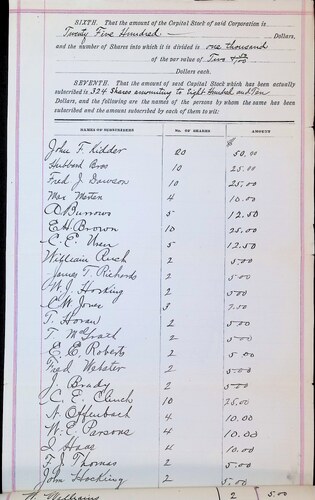 SIXTH. That the amount of the Capital Stock of said Corporation is
Twenty Five Hundred Dollars,
and the number of Shares into which it is divided is one thousand
of the par value of Two 50/100
Dollars each.
SEVENTH. That the amount of said Capital Stock which has been actually
subscribed is 324 Shares amounting to Eight Hundred and Ten
Dollars, and the following are the names of the persons by whom the same has been
subscribed and the amount subscribed by each of them to wit:
NAMES OF SUBSCRIBERS No. OF SHARES AMOUNT
$
John F. Kidder 20 50.00
Hubbard Bros 10 25.00
Fred J. Dawson 10 25.00
Max 4 10.00
Burrows 5 12.50
E.H. Brown 10 25.00
C. E. 5 12.50
William 2 5.00
James T. Richards 2 5.00
W. J. Hocking 2 5.00
C. W. Jones 3 7.50
T. Horan 2 5.00
T. McGrath 2 5.00
E. E. Roberts 2 5.00
Fred Webster 2 5.00
J. Brady 2 5.00
C. E. Clinch 10 25.00
N. Offenbach 4 10.00
W. E. Parsons 4 10.00
I. Haas 4 10.00
Thomas 2 5.00
John Hocking 2 5.00
Williams 2 5.00